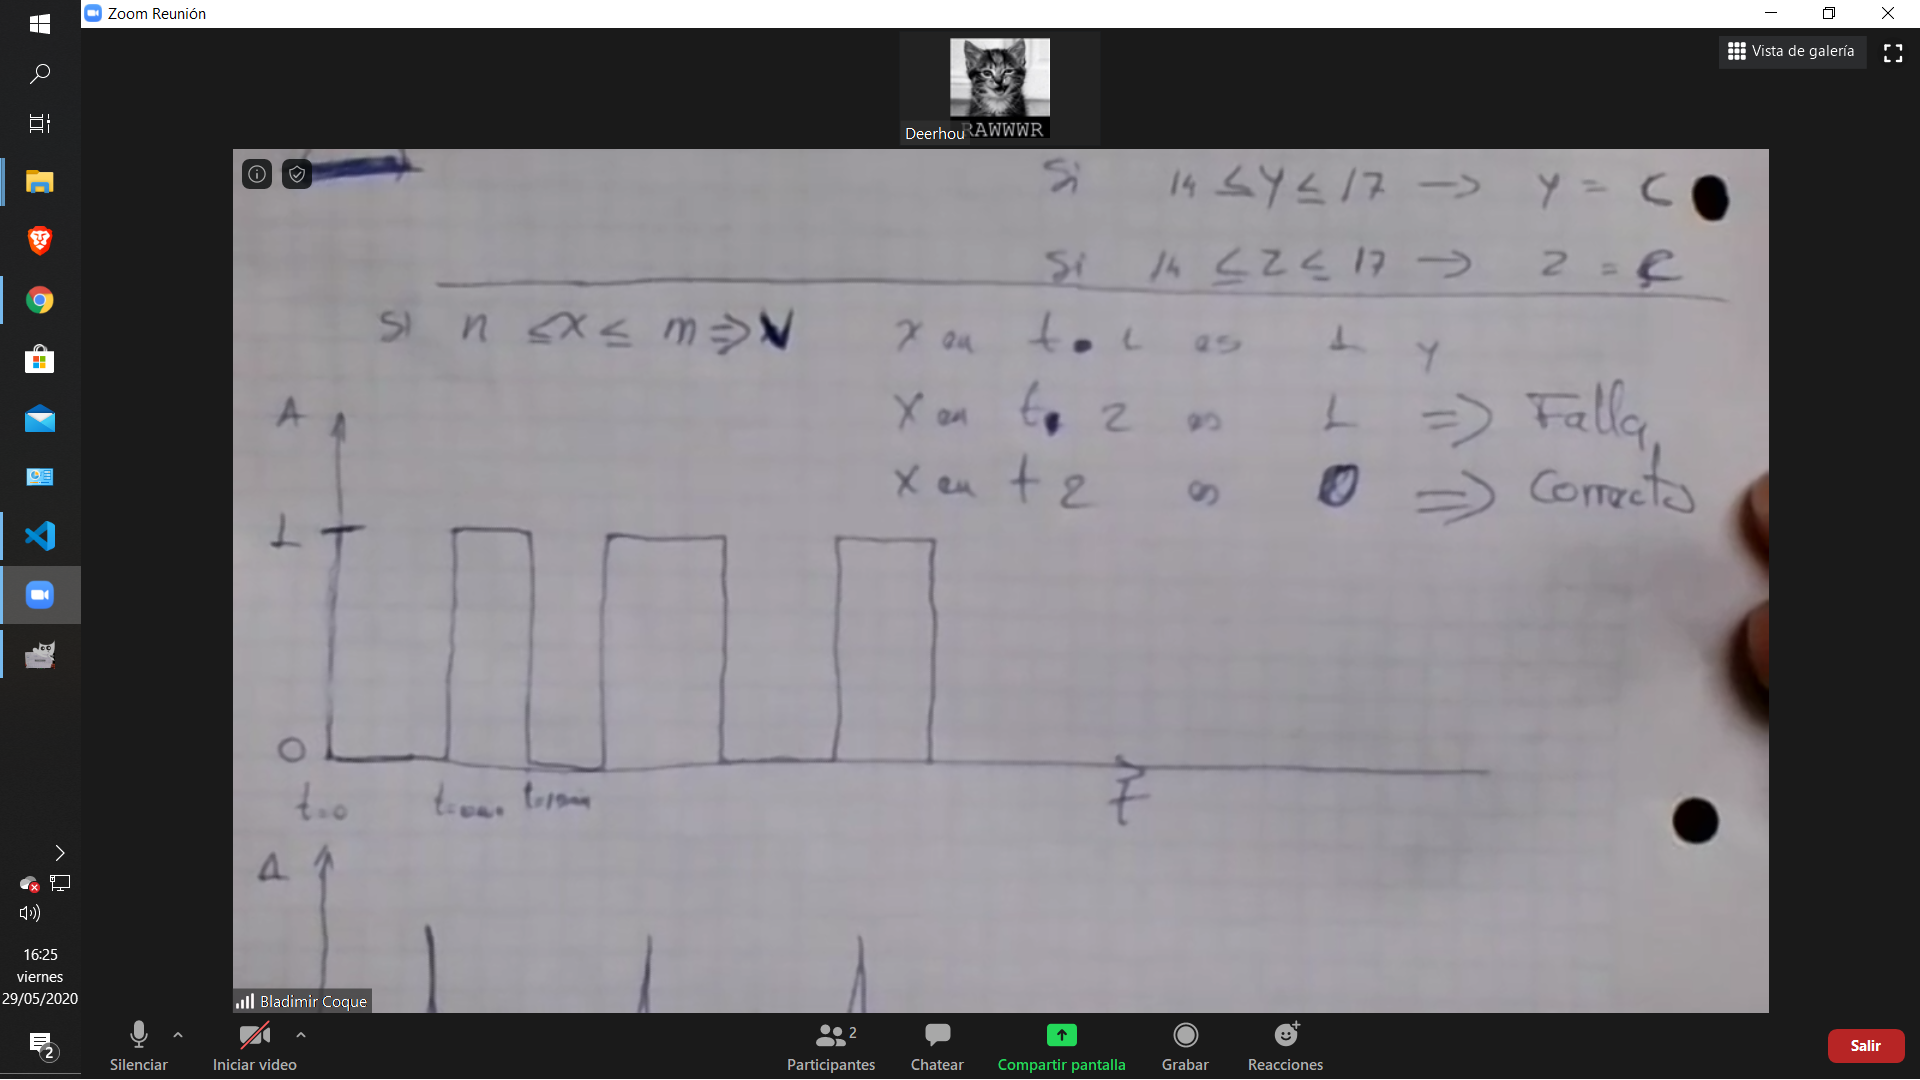 Zoom Reunión
Vista de galería
RAWWWR
Deerhou
Si 14 ≤ y ≤ 17 → y = C
Si 14 ≤ z ≤ 17 → z = C
Si n ≤ x ≤ m ⇒ V
x en t 1 es 1 y
x en t 2 es 1 ⇒ Falla
x en t 2 es 0 ⇒ Correcto
A
1
0
t=0
t
A
Bladimir Coque
16:25
viernes
29/05/2020
2
Silenciar
Iniciar video
Participantes 2
Chatear
Compartir pantalla
Grabar
Reacciones
Salir